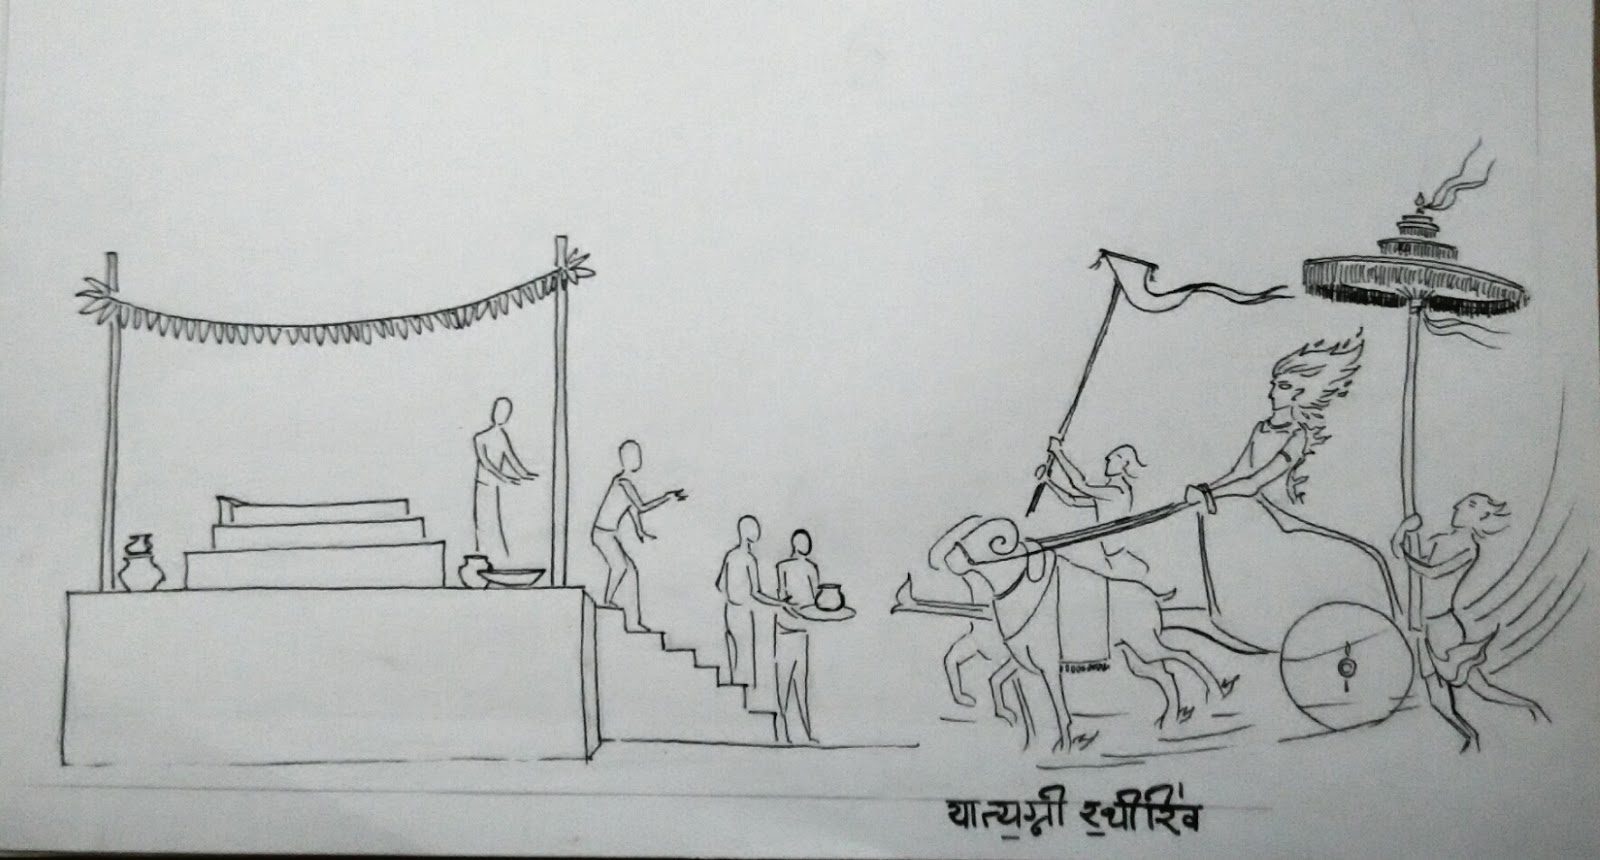 यात्य॒ग्नी र॒थीरि॑व